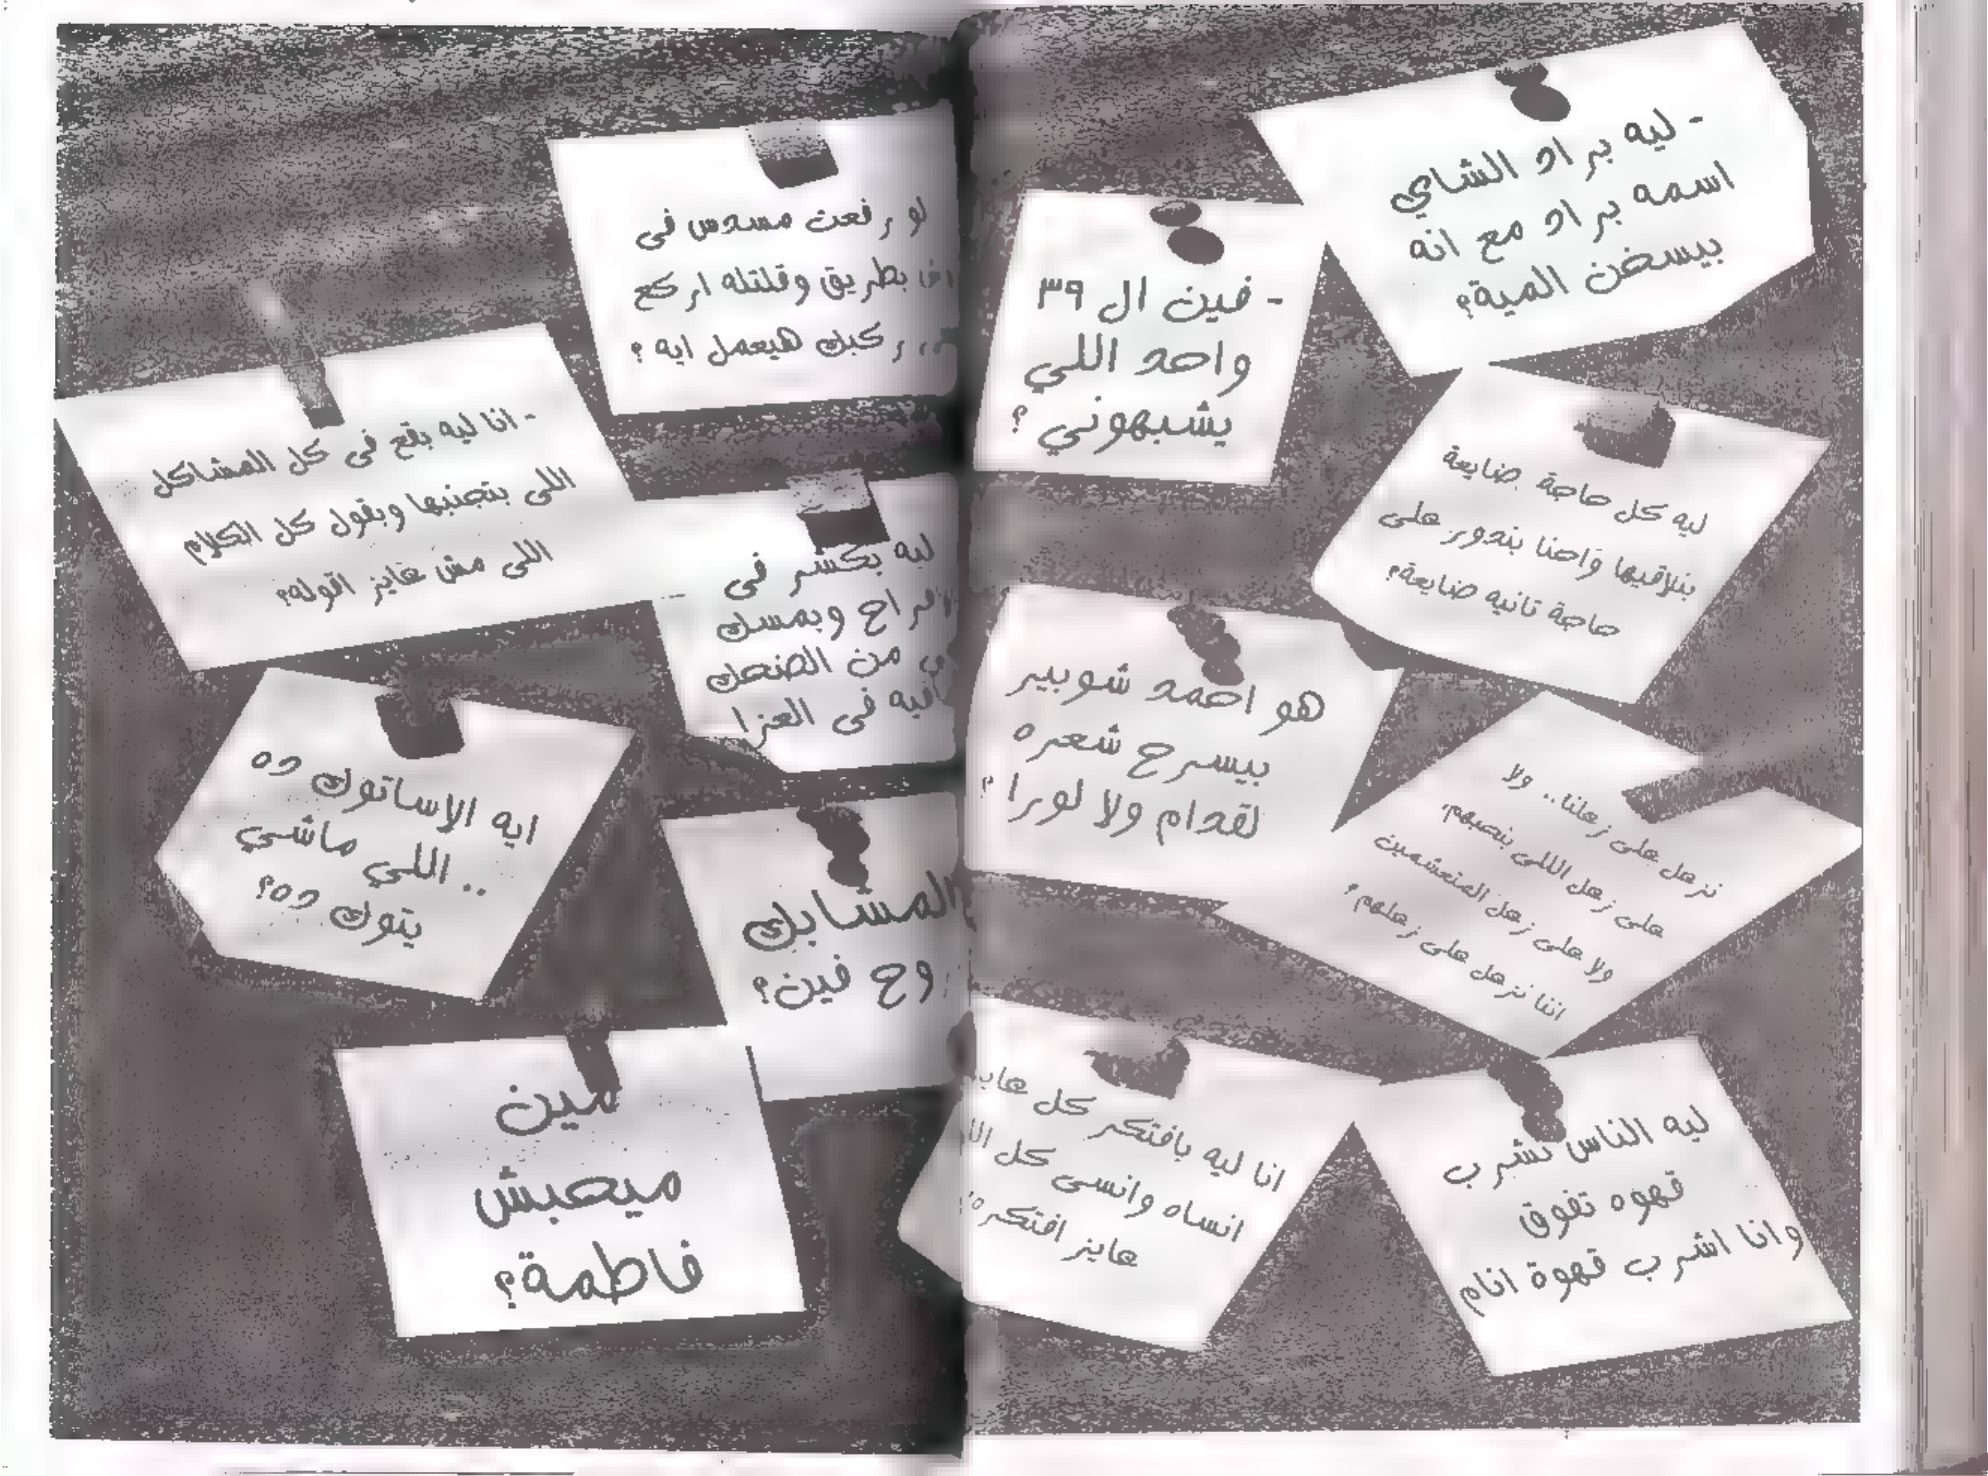 - ليه براد الشاي
اسمه براد مع انه
بيسخن المية؟
- فين ال ٣٩
واحد اللي
يشبهوني ؟
ليه كل حاجة ضايعة
بنلاقيها واحنا بندور على
حاجة تانيه ضايعة؟
هو احمد شوبير
بيسرح شعره
لقدام ولا لورا ؟
نزعل على زعلنا.. ولا
على زعل الللى بنحبهم،
ولا على زعل المتعشمين
اننا نزعل على زعلهم ؟
انا ليه بافتكر كل
انساه وانسى كل
عايز افتكره
ليه الناس تشرب
قهوه تفوق
وانا اشرب قهوة انام
لو رفعت مسدس فى
بطريق وقلتله اركع
ركبك هيعمل ايه ؟
- انا ليه بقع فى كل المشاكل
اللى بتجنبها وبقول كل الكلام
اللى مش عايز اقوله؟
ليه بكشر فى
وبمسك
من الضحك
فى العزا
ايه الاساتوك ده
.. اللي ماشي
يتوك ده؟
المشابك
فين؟
مين
ميحبش
فاطمة؟